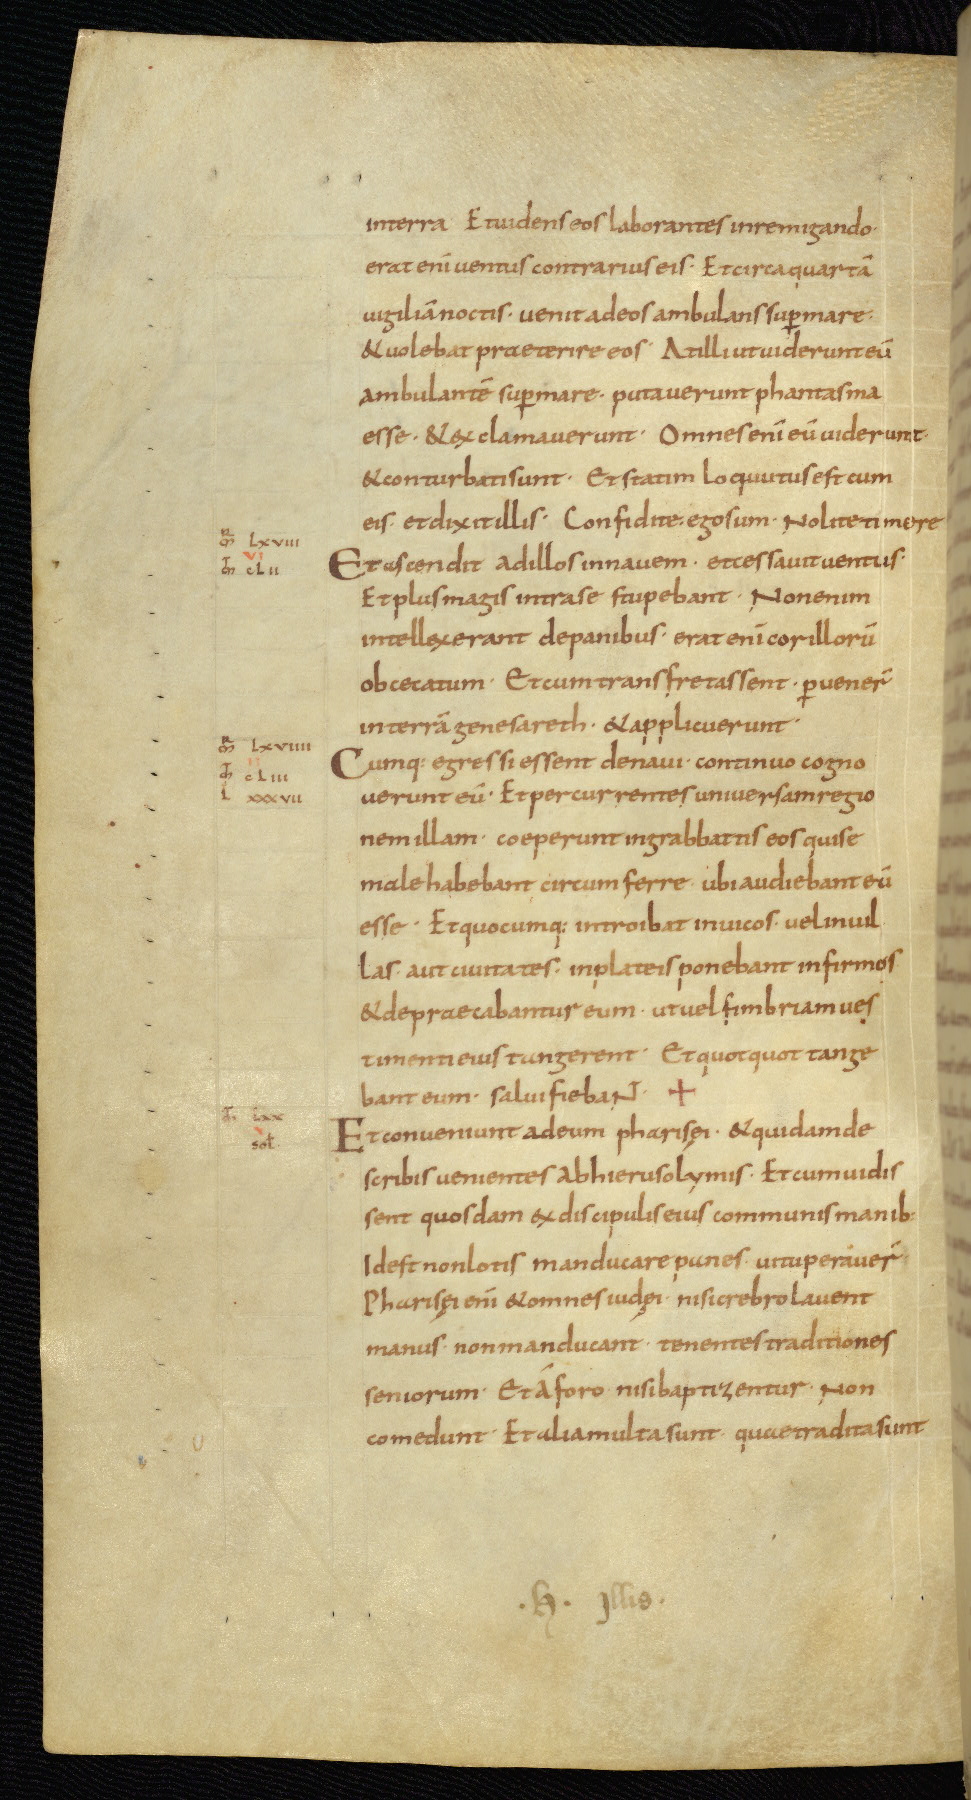 interra Etuidens eos laborantes inremigando·
erat enī uentus contrarius eis· Et circa quartā
uigiliā noctis· uenit adeos ambulans suꝑmare·
&uolebat praeterire eos· Atilli utuiderunt eū
ambulantē suꝑmare· putauerunt phantasma
esse· &exclamauerunt· Omnes enī eū uiderunt·
&conturbati sunt· Et statim loquutus est cum
eis· et dixit illis· Confidite· ego sum· Nolite timere
mr̄ Lxviii
mt̄ cLii
vi
Et ascendit adillos innauem· et cessauit uentus·
Et plus magis intrase stupebant· Non enim
intellexerant depanibus· erat enī cor illorū
obcecatum· Et cum transfretassent· ꝑuener̄
interrā genesareth· &applicuerunt·
mr̄ Lxviiii
mt̄ cLiii
ii
l xxxvii
Cumq: egressi essent denaui· continuo cogno
uerunt eū· Et percurrentes uniuersam regio
nem illam· coeperunt ingrabbattis eos quise
male habebant circumferre ubi audiebant eū
esse· Et quocumq: introibat inuicos· uel inuil
las· aut ciuitates· inplateis ponebant infirmos
&depraecabantur eum· ut uel fimbriam ues
timenti eius tangerent· Et quotquot tange
bant eum· salui fiebaNT· +
Lxx
sol
Et conueniunt adeum pharisęi· &quidam de
scribis uenientes abhierusolymis· Et cum uidis
sent quosdam exdiscipulis eius communis manib:
Id est non lotis manducare panes· uituperauer̄·
Pharisęi enī &omnes iudęi· nisi crebro lauent
manus· non manducant· tenentes traditiones
seniorum· Et á foro nisi baptizentur· Non
comedunt· Et alia multa sunt· quae tradita sunt
·H· Illis·